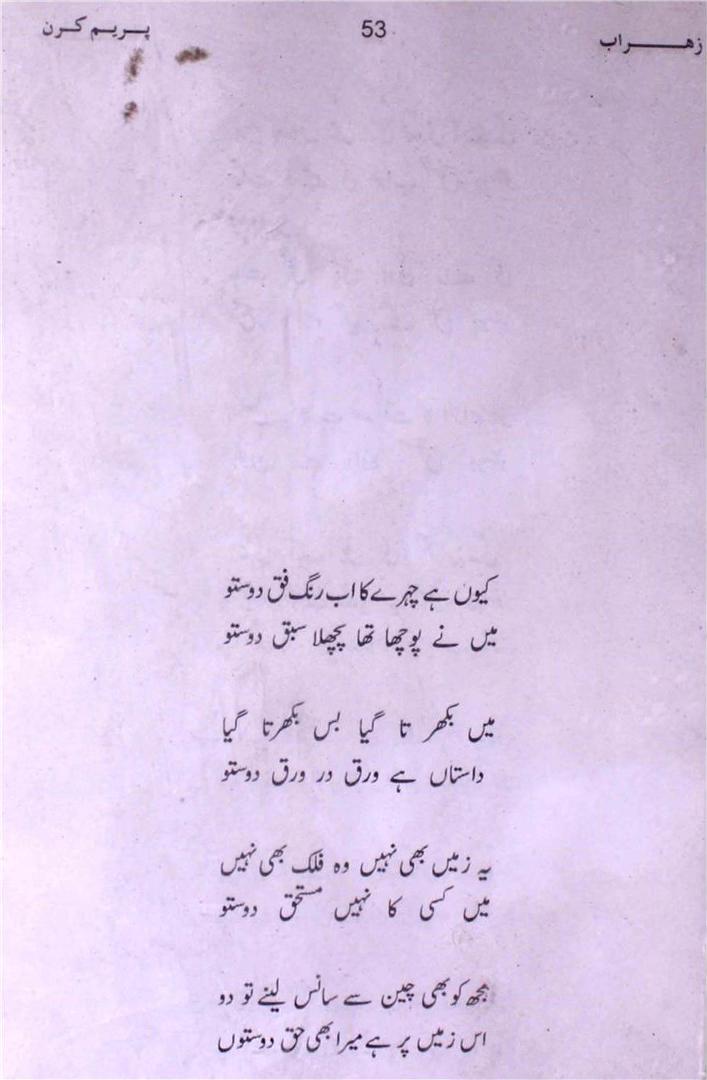 زهراب 53 پریم کرن
کیوں ہے چہرے کا اب رنگ فق دوستو
میں نے پوچھا تھا پچھلا سبق دوستو
میں بکھر تا گیا بس بکھرتا گیا
داستاں ہے ورق در ورق دوستو
یہ زمیں بھی نہیں وہ فلک بھی نہیں
میں کسی کا نہیں مستحق دوستو
مجھ کو بھی چین سے سانس لینے تو دو
اس زمیں پر ہے میرا بھی حق دوستوں